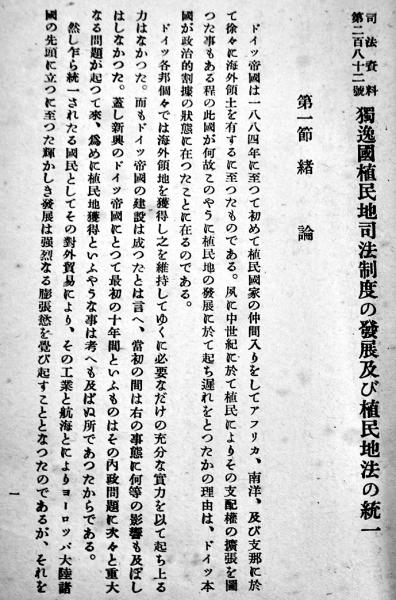 司法資料
第二百八十二號
獨逸國植民地司法制度の發展及び植民地法の統一
第一節 緖論
ドイツ帝國は一八八四年に至つて初めて植民國家の仲間入りをしてアフリカ、南洋、及び支那に於
て徐々に海外領土を有するに至つたものである。夙に中世紀に於て植民によりその支配權の擴張を圖
つた事もある程の此國が何故このやうに植民地の發展に於て起ち遲れをとつたかの理由は、ドイツ本
國が政治的割據の狀態に在つたことに在るのである。
ドイツ各邦個々では海外領地を獲得し之を維持してゆくに必要なだけの充分な實力を以て起ち上る
力はなかつた。而もドイツ帝國の建設は成つたとは言へ、當初の間は右の事態に何等の影響も及ぼし
はしなかつた。蓋し新興のドイツ帝國にとつて最初の十年間といふものはその內政問題に次々と重大
なる問題が起つて來、爲めに植民地獲得といふやうな事は考へも及ばぬ所であつたからである。
然し乍ら統一されたる國民としてその對外貿易により、その工業と航海とによりヨーロッパ大陸諸
國の先頭に立つに至つた輝かしき發展は强烈なる膨張慾を覺び起すこととなつたのであるが、それを
一